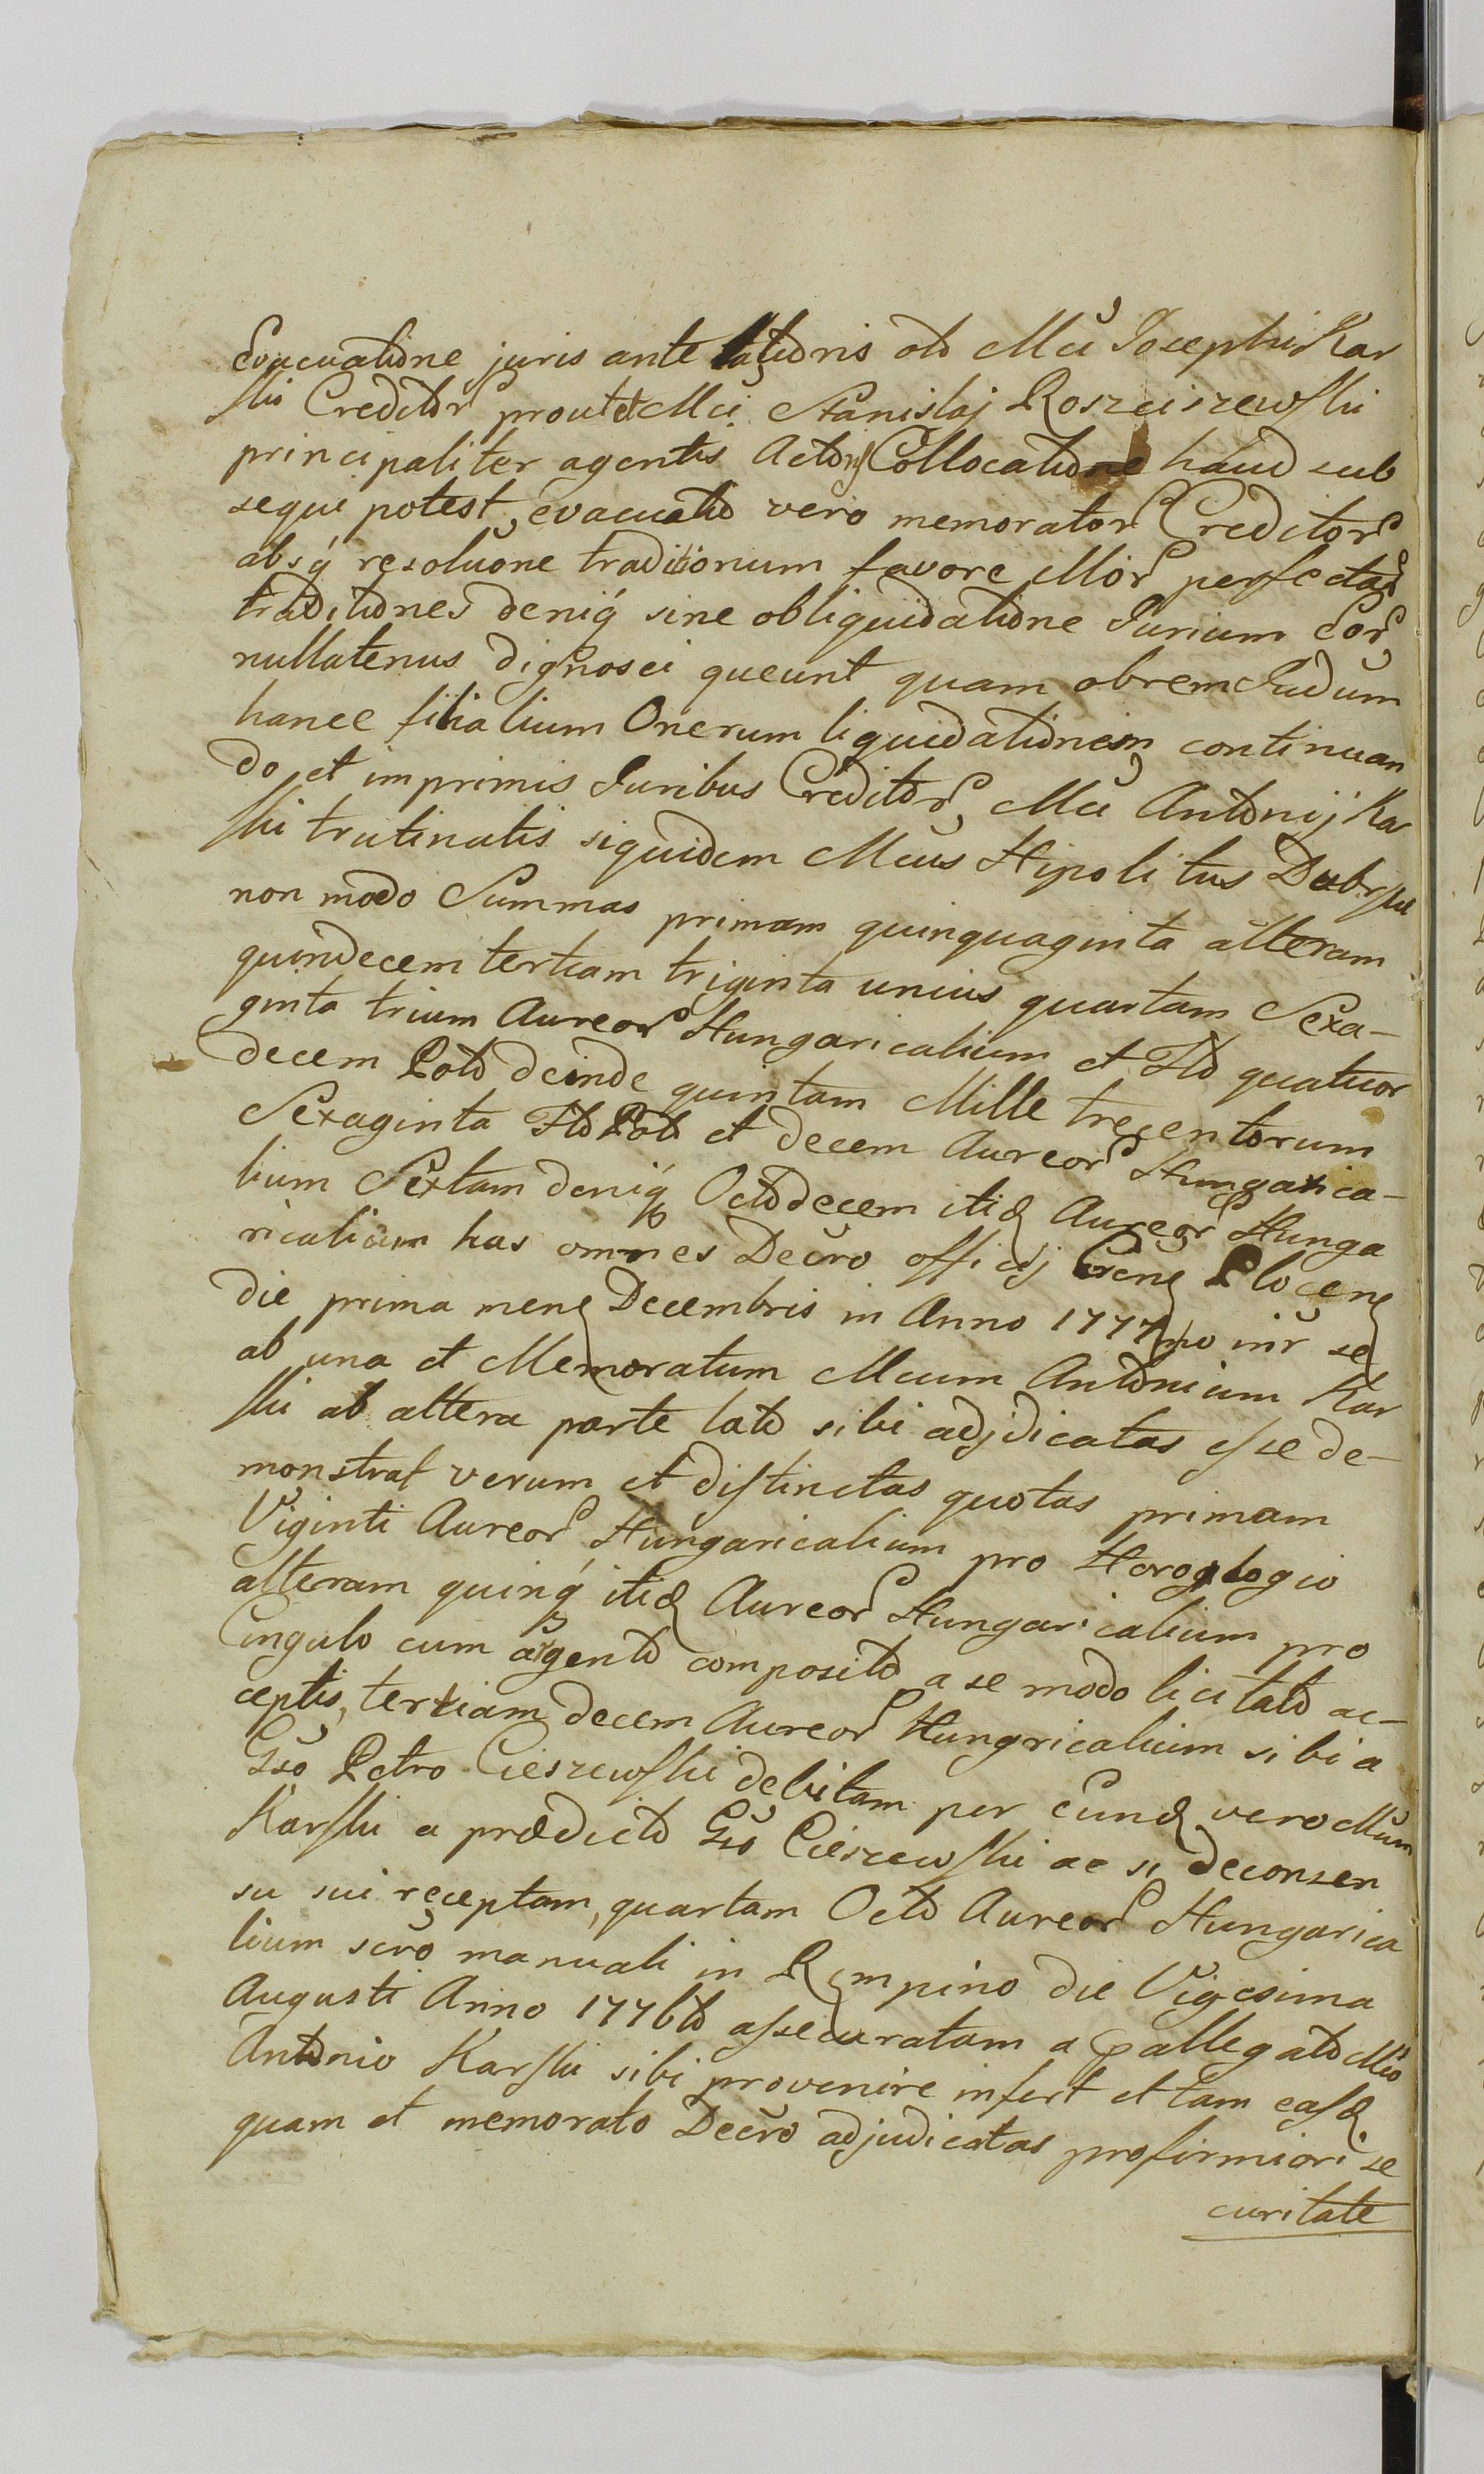 Evacuatione juris ante lationis oto Mci Josephi Kar
ski Creditor prout et Mci Stanislaj Roszciszewski
principaliter agentis Actoris Collocatione haud sub
sequi potest, evacuatio vero memorator Creditor
absq́ resolŭone traditionum favore Mor perfectar
traditiones deniq́ sine obliquidatione Jurium Eor,
nullatenus dignosci queunt quam obrem Judum
hance filialium Onerum liquidationem continuan
do, et imprimis Juribus Creditor, Mci Antonij Kar
ski trutinatis siquidem Mcus Hipolitus Dubrski
non modo Summas primam quinquaginta alteram
quindecem tertiam triginta unius quartam Sexa-
ginta trium Aureor Hungaricalium et Flo quatuor
decem Polo deinde quintam Mille trecentorum
Sexaginta Flo Polo et decem Aureor Hungarica-
lium Sextam deniq́ Octodecem itid Aureor Hunga
ricalium has omnes Decro officij Gren Plocen
die prima mens Decembris in Anno 1777mo inr se
ab una et Memoratum Mcum Antonium Kar
ski ab altera parte lato sibi adjdicatas esse de-
monstrat verum et distinctas quotas primam
Viginti Aureor Hungaricalium pro Horoglogio
alteram quinq́ itid Aureor Hungaricalium pro
Cingulo cum argento composito a se modo licitato ac-
ceptis, tertiam decem Aureor Hungricalium sibi a
Gso Petro Cieszewski debitam per Eund vero Mcum
Karski a prædicto Gso Cieszewski ac si deconsen
su sui receptam, quartam Octo Aureor Hungarica
lium scro manuali in Rempino die Vigesima
Augusti Anno 1776to assecuratam a pallegato Mco
Antonio Karski sibi provenire infert et tam easd
quam et memorato Decro adjudicatas pro firmiori se
curitate